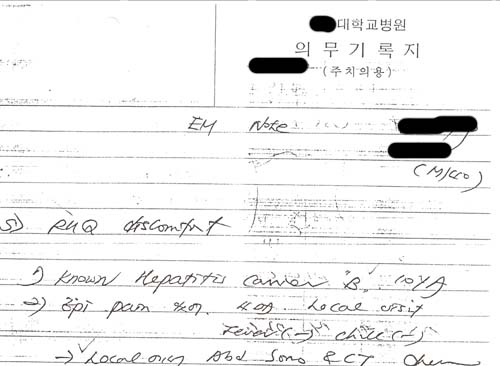 대학교병원
의 무 기 록 지
(주치의용)
EM Note
(M/60)
S) RUQ discomfort
1) Known Hepatitis carrier "B" 10YA
2) Epi pain Local visit
Fever(-) chill(-)
→ Local Abd Sono & CT